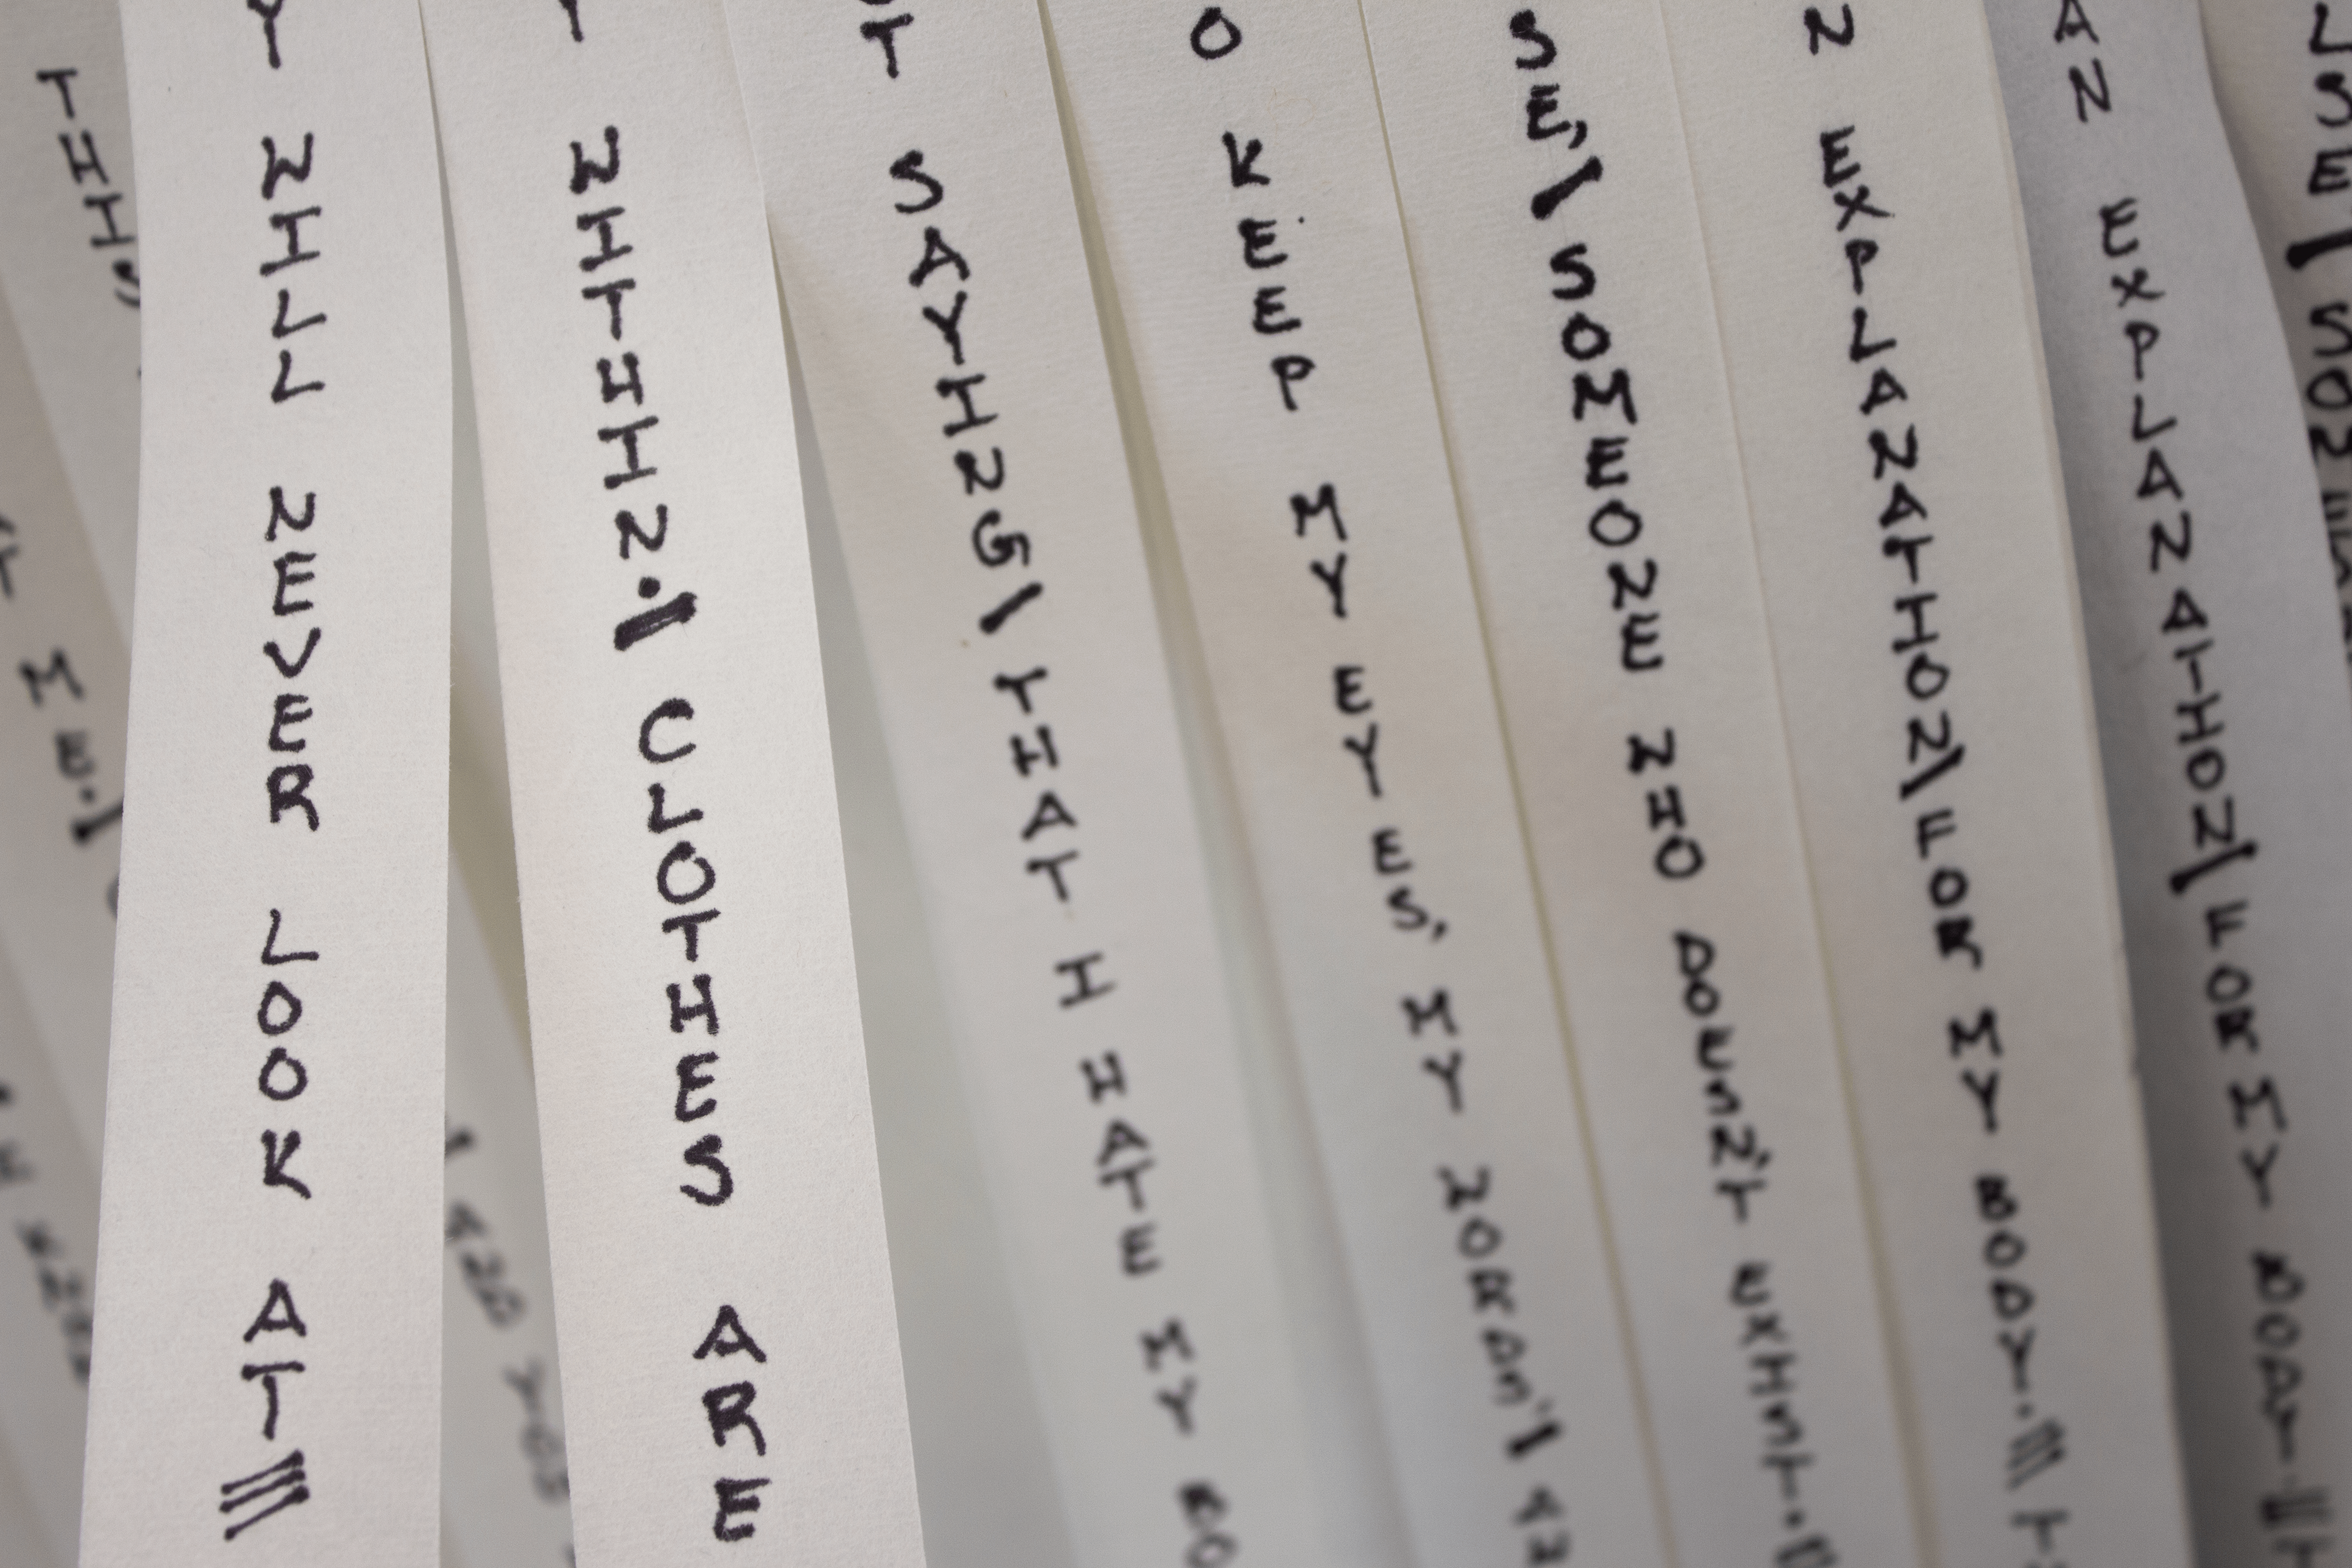 THIS
ME.\
Y WILL NEVER LOOK AT
Y WITHIN.\ CLOTHES ARE
OT SAYING\ THAT I HATE MY BO
O KEEP MY EYES, MY WORDS'\
SE,\ SOMEONE WHO DOESN'T EXIST.
N EXPLANATION\ FOR MY BODY.
AN EXPLANATION\ FOR MY BODY.
LSE\ SOM